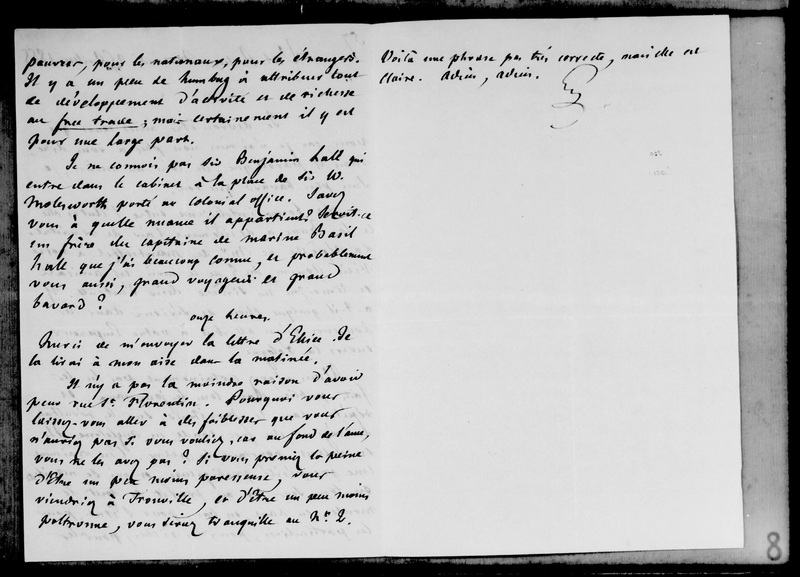 pauvres, pour les nationaux, pour les étrangers.
Il y a un peu de humbug à attribuer tout
ce développement d'activité et de richesse
au free trade ; mais certainement il y est
pour une large part.
Je ne connois pas Sir Benjamin hall qui
entre dans le cabinet à la place de Sir W.
Molesworth porté au colonial office. Savez
vous à quelle nuance il appartient ? Seroit-ce
un frère du capitaine de marine Basil
hall que j'ai beaucoup connu, et probablement
vous aussi, grand voyageur et grand
bavard ?
onze heures.
Merci de m'envoyer la lettre d'Ellice. Je
la lirai à mon aise dans la matinée.
Il n'y a pas la moindre raison d'avoir
peur rue St. Florentin. Pourquoi vous
laissez-vous aller à des faiblesses que vous
n'auriez pas si vous vouliez, car au fond de l'ame,
vous ne les avez pas ? Si vous preniez la peine
d'être un peu moins paresseuse, vous
viendriez à Trouville, et d'être un peu moins
poltronne, vous seriez tranquille au No. 2.
Voilà une phrase pas très correcte, mais elle est
claire. Adieu, adieu.
8